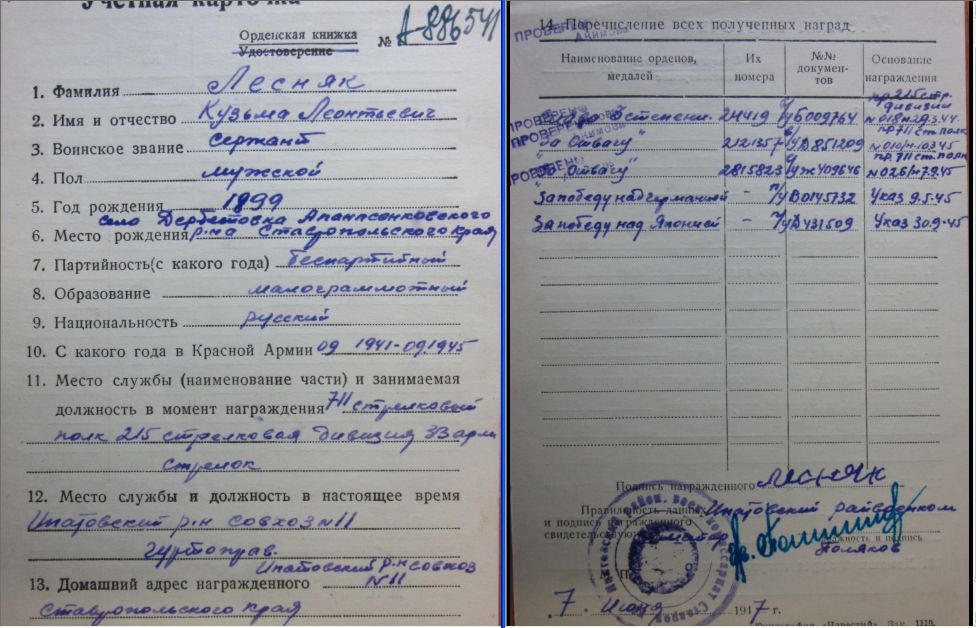 Учетная карточка
Орденская книжка
Удостоверение
№ А-886541
1. Фамилия Лесняк
2. Имя и отчество Кузьма Леонтьевич
3. Воинское звание Сержант
4. Пол мужской
5. Год рождения 1899
село Дербетовка Апанасенковского
6. Место рождения р-на Ставропольского края
7. Партийность (с какого года) беспартийный
8. Образование малограммотный
9. Национальность русский
10. С какого года в Красной Армии 09 1941-09.1945
11. Место службы (наименование части) и занимаемая
должность в момент награждения 711 стрелковый
полк 215 стрелковая дивизия 33 арм
стрелок
12. Место службы и должность в настоящее время
Ипатовский р-н совхоз № 11
гуртоправ.
Ипатовский р-н совхоз
13. Домашний адрес награжденного № 11
Ставропольского края
14. Перечисление всех полученных наград
ПРОВЕРЕНО
Наименование орденов, медалей
Их номера
№№ докумен-тов
Основание награждения
ПРОВЕРЕНО
пр 215 стр. дивизии
степени. 24419 б009764 № 018 м 29.3.44
ПРОВЕРЕНО
пр 711 ст полк
За Отвагу 2121357 Д851209 № 010/н-10.3.45
ПРОВЕРЕНО
пр. 711 ст. полк
" Отвагу " 2815823 Ж409646 № 026/н 7.9.45
За победу над германией - Д0145732 Указ 9.5.45
За победу над Японией - Д431509 Указ 30.9.45
Подпись награжденного Лесняк
Правильность данных Ипатовский райвоенком
и подпись награжденного
свидетельствую:
должность и подпись
Поляков
7. Июня 1947 г.